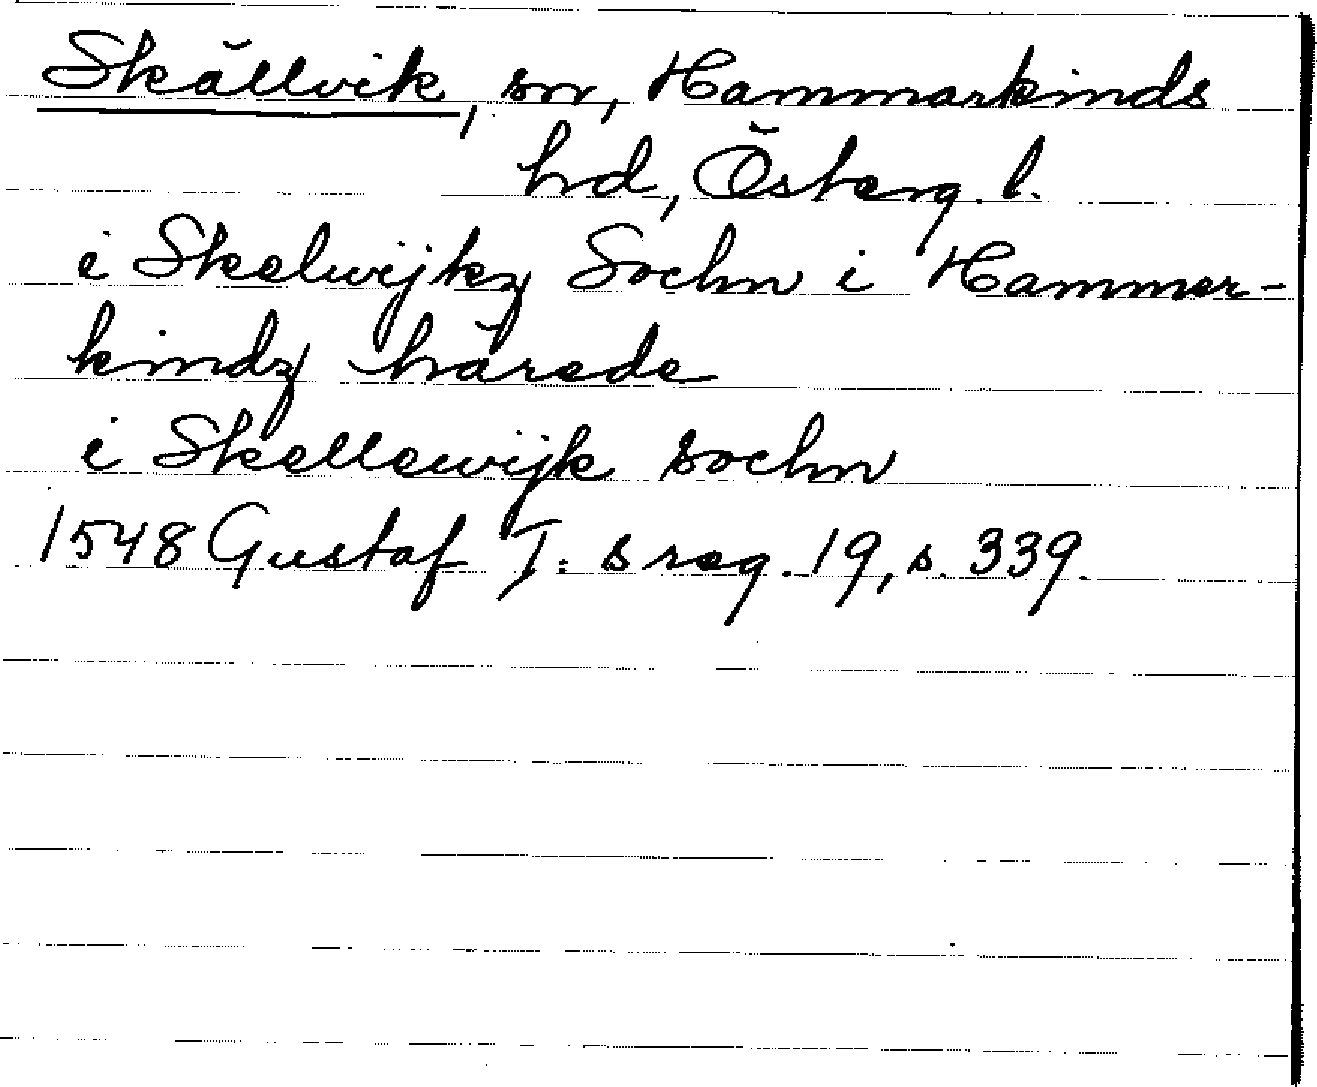 Skällvik, sn, Hammarkinds
hd, Österg. l.
i Skelwijkz Sochn i Hammer-
kindz härede
i Skellewijk sochn
1548 Gustaf I:s reg. 19, s. 339.